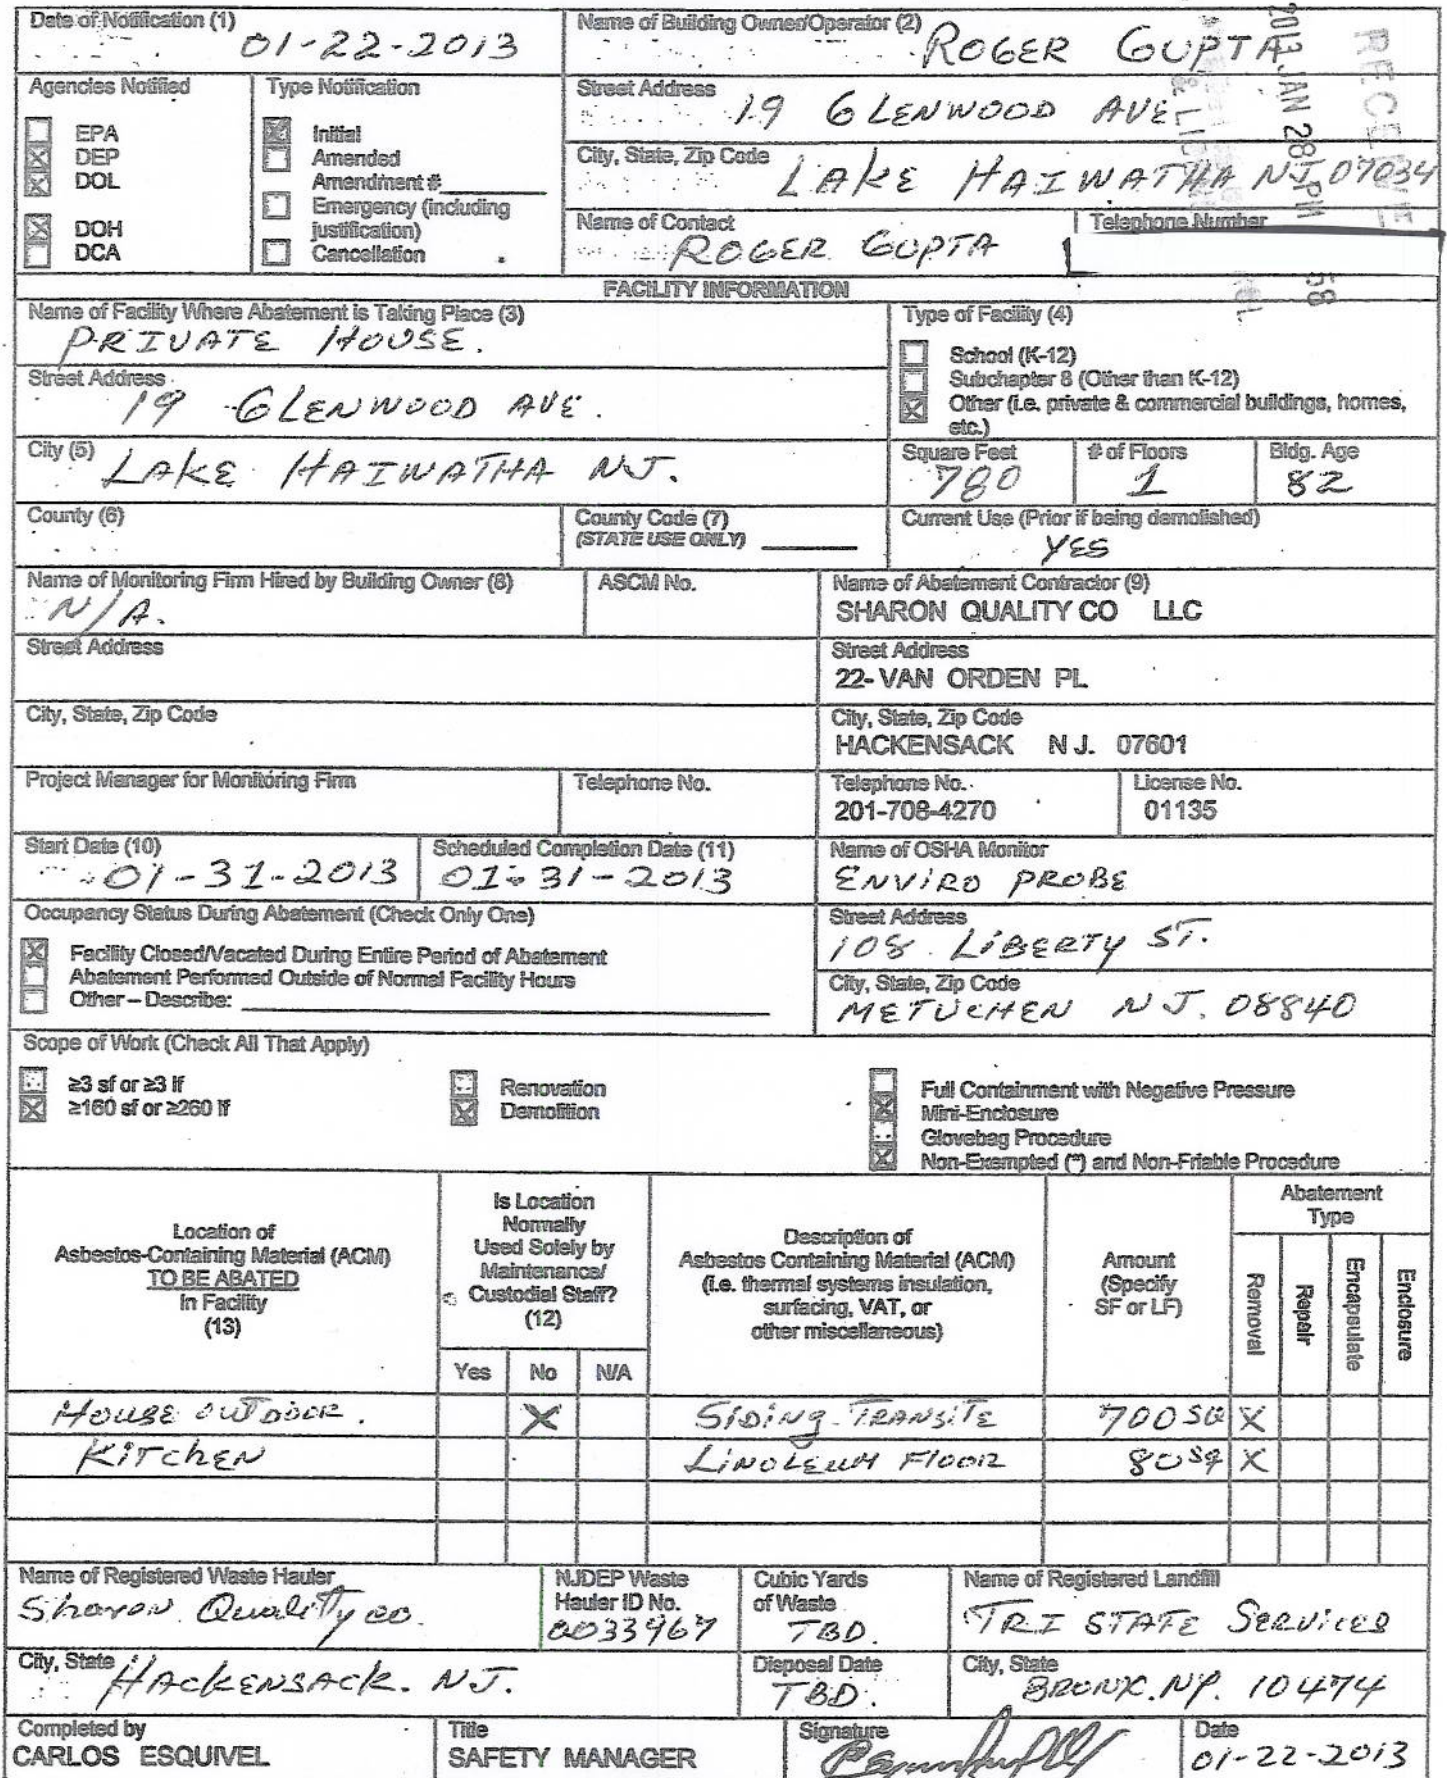 Date of Notification (1)
01-22-2013
Name of Building Owner/Operator (2)
ROGER GUPTA
Agencies Notified
EPA
DEP
DOL
DOH
DCA
Type Notification
Initial
Amended
Amendment #
Emergency (including
justification)
Cancellation
Street Address
19 GLENWOOD AVE
City, State, Zip Code
LAKE HAIWATHA NJ 07034
Name of Contact
ROGER GUPTA
Telephone Number
2013 JAN 28 PM 58
FACILITY INFORMATION
Name of Facility Where Abatement is Taking Place (3)
PRIVATE HOUSE.
Type of Facility (4)
School (K-12)
Subchapter 8 (Other than K-12)
Other (i.e. private & commercial buildings, homes,
etc.)
Street Address
19 GLENWOOD AVE.
City (5)
LAKE HAIWATHA NJ.
Square Feet
780
# of Floors
1
Bldg. Age
82
County (6)
County Code (7)
(STATE USE ONLY)
Current Use (Prior if being demolished)
YES
Name of Monitoring Firm Hired by Building Owner (8)
N/A.
ASCM No.
Name of Abatement Contractor (9)
SHARON QUALITY CO LLC
Street Address
Street Address
22- VAN ORDEN PL
City, State, Zip Code
City, State, Zip Code
HACKENSACK N J. 07601
Project Manager for Monitoring Firm
Telephone No.
Telephone No.
201-708-4270
License No.
01135
Start Date (10)
01-31-2013
Scheduled Completion Date (11)
01-31-2013
Name of OSHA Monitor
ENVIRO PROBE
Occupancy Status During Abatement (Check Only One)
Facility Closed/Vacated During Entire Period of Abatement
Abatement Performed Outside of Normal Facility Hours
Other – Describe:
Street Address
108 LIBERTY ST.
City, State, Zip Code
METUCHEN NJ. 08840
Scope of Work (Check All That Apply)
≥3 sf or ≥3 lf
≥160 sf or ≥260 lf
Renovation
Demolition
Full Containment with Negative Pressure
Mini-Enclosure
Glovebag Procedure
Non-Exempted (*) and Non-Friable Procedure
Location of
Asbestos-Containing Material (ACM)
TO BE ABATED
In Facility
(13)
Is Location
Normally
Used Solely by
Maintenance/
Custodial Staff?
(12)
Yes No N/A
Description of
Asbestos Containing Material (ACM)
(i.e. thermal systems insulation,
surfacing, VAT, or
other miscellaneous)
Amount
(Specify
SF or LF)
Abatement
Type
Removal
Repair
Encapsulate
Enclosure
HOUSE OUTDOOR. X SIDING TRANSITE 700 SQ X
KITCHEN LINOLEUM FLOOR 80 SQ X
Name of Registered Waste Hauler
Sharon Quality co.
NJDEP Waste
Hauler ID No.
0033967
Cubic Yards
of Waste
TBD.
Name of Registered Landfill
TRI STATE SERVICES
City, State
HACKENSACK. NJ.
Disposal Date
TBD.
City, State
BRONX. NY. 10474
Completed by
CARLOS ESQUIVEL
Title
SAFETY MANAGER
Signature
Date
01-22-2013